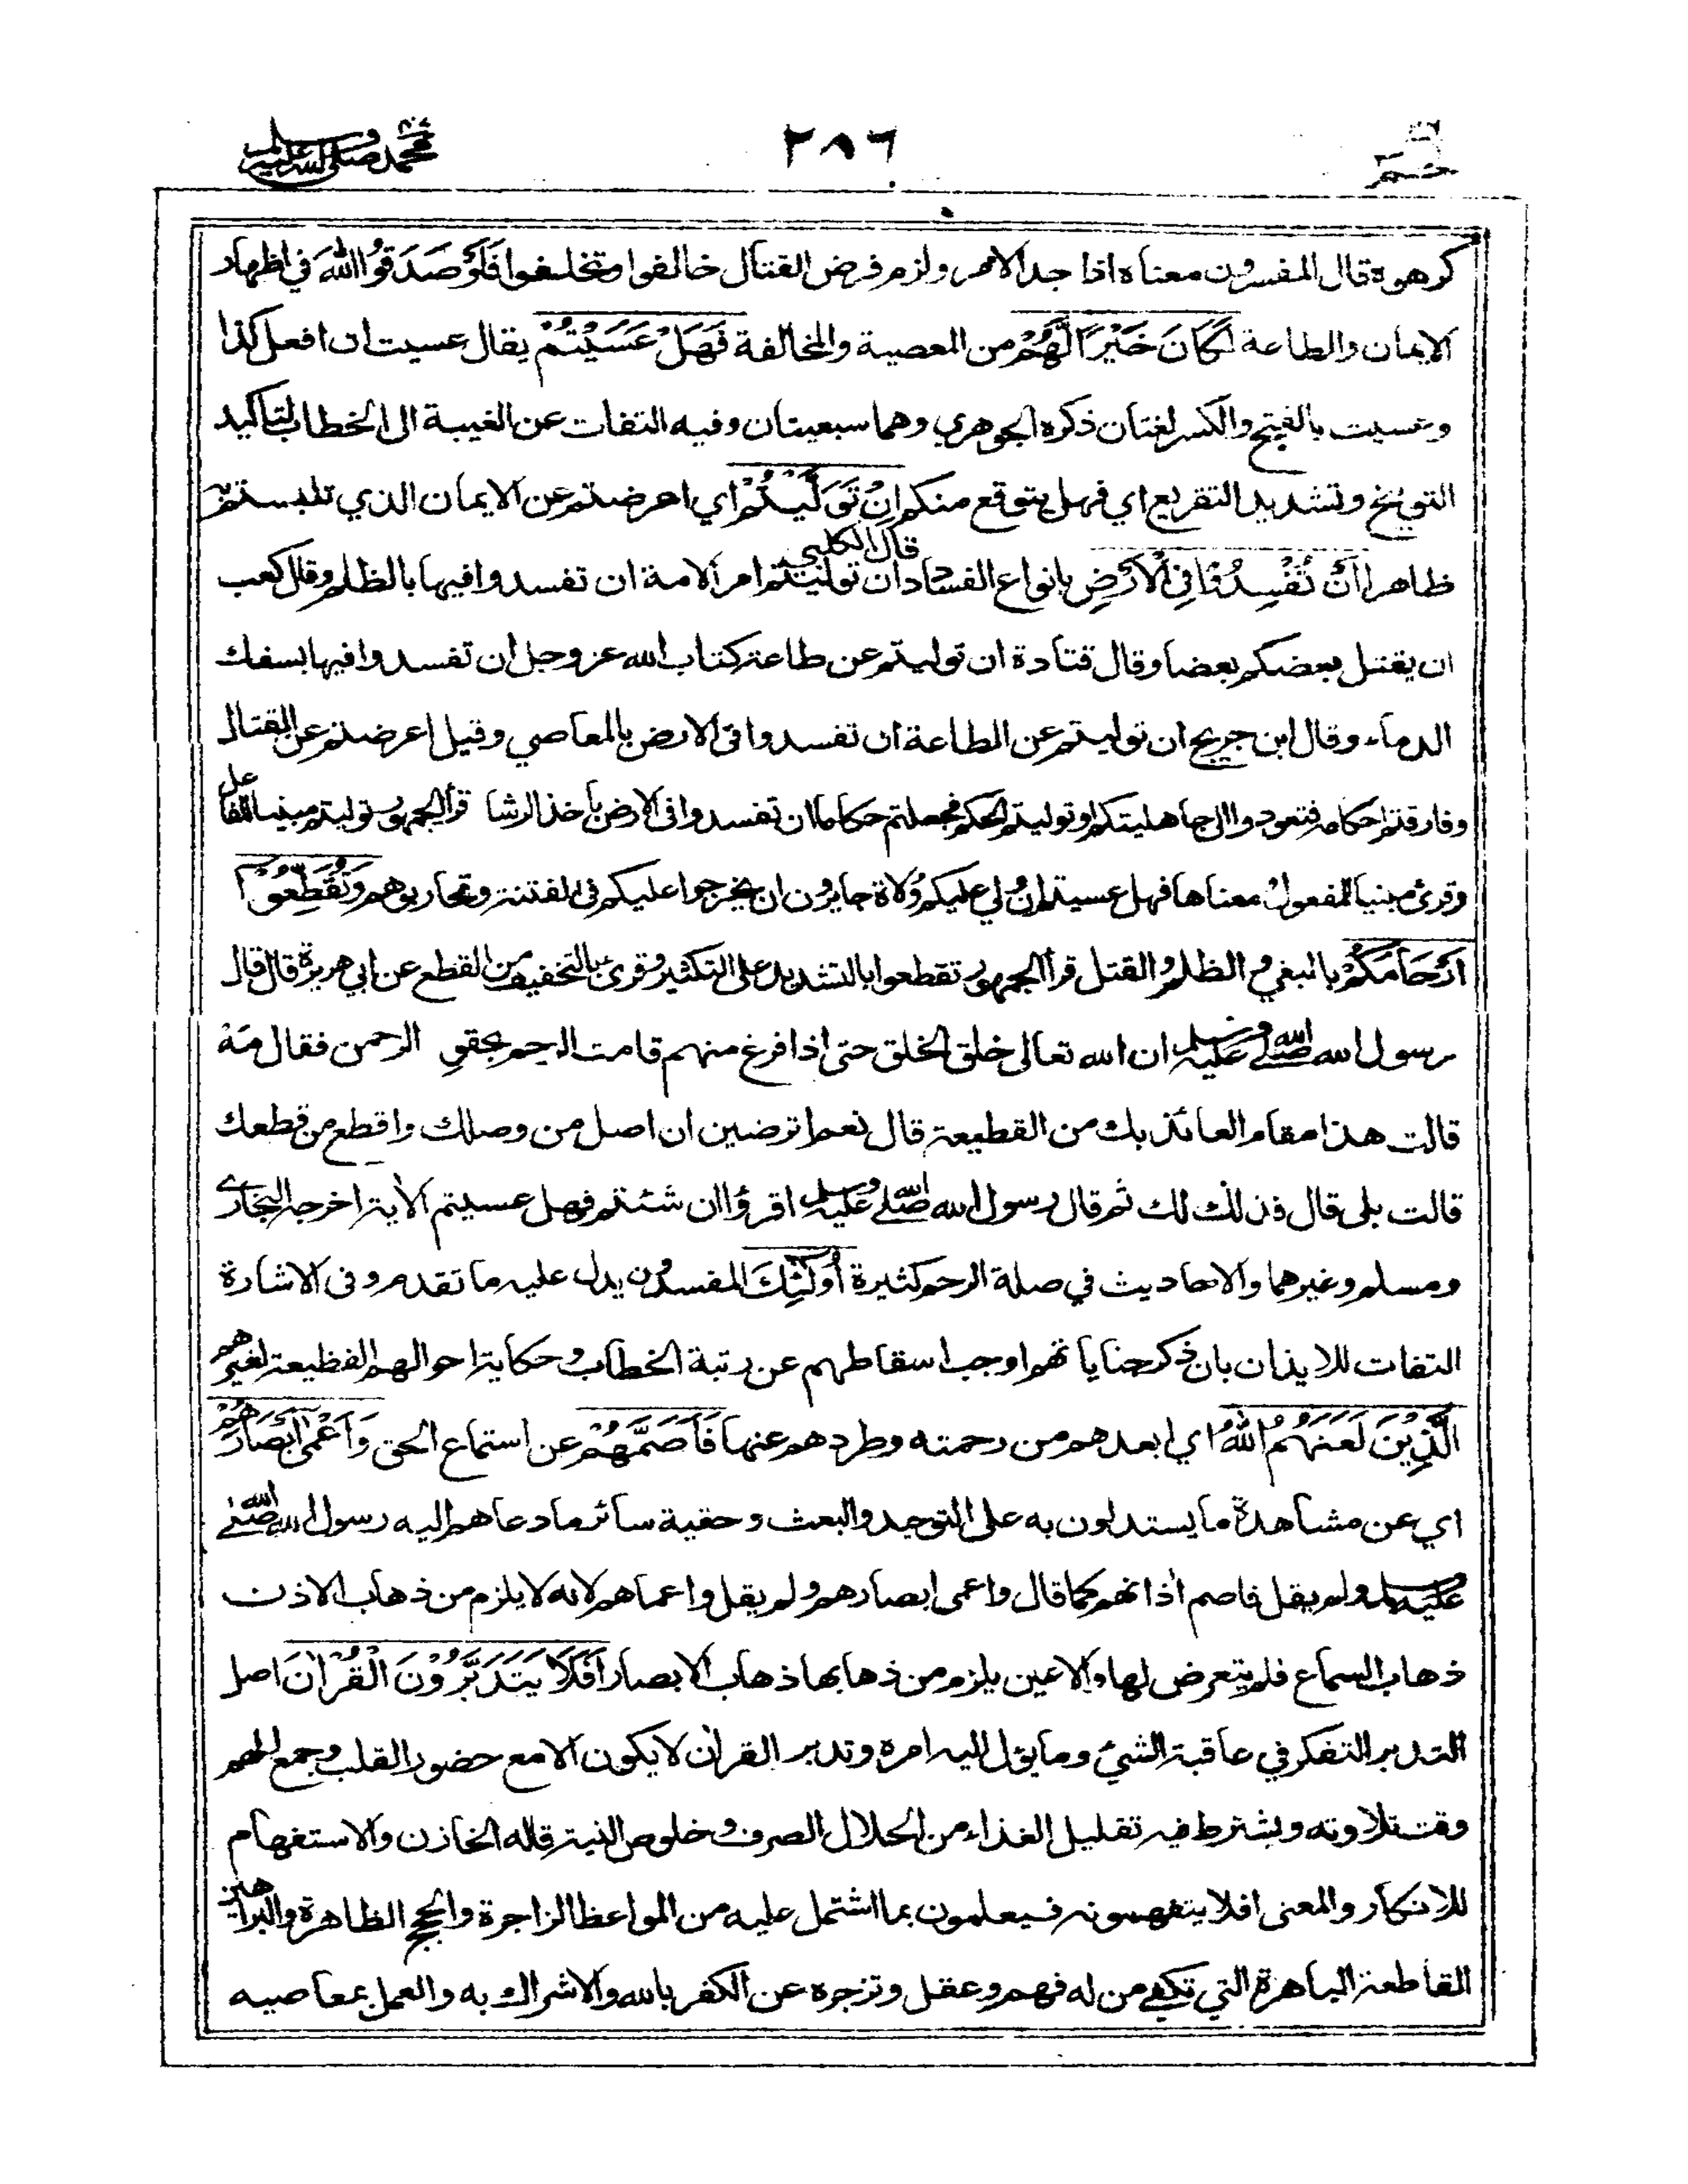 حم ٢٨٦ محمد صلى الله عليه وسلم
كرهوه قال المفسرون معناه اذا جد الامر ولزم فرض القتال خالفوا وتخلفوا فَلَوْ صَدَقُوا اللهَ في اظهار
الايمان والطاعة لَكَانَ خَيْرًا لَّهُمْ من المعصية والمخالفة فَهَلْ عَسَيْتُمْ يقال عسيت ان افعل كذا
وعسيت بالفتح والكسر لغتان ذكره الجوهري وهما سبعيتان وفيه التفات عن الغيبة الى الخطاب لتاكيد
التوبيخ وتشديد التقريع اي فهل يتوقع منكم اِنْ تَوَلَّيْتُمْ اي اعرضتم عن الايمان الذي تلبستم به
ظاهرا اَنْ تُفْسِدُوْا فِي الْاَرْضِ بانواع الفساد قال الكلبي ان توليتم امر الامة ان تفسدوا فيها بالظلم وقال كعب
ان يقتل بعضكم بعضا وقال قتادة ان توليتم عن طاعة كتاب الله عز وجل ان تفسدوا فيها بسفك
الدماء وقال ابن جريج ان توليتم عن الطاعة ان تفسدوا فى الارض بالمعاصي وقيل اعرضتم عن القتال
وفارقتم احكامه فتعودوا الى جاهليتكم او توليتم الحكم فجعلتم حكاما ان تفسدوا فى الارض بأخذ الرشا قرأ الجمهور توليتم مبنيا للفاعل
وقرئ مبنيا للمفعول معناها فهل عسيتم ان وُلي عليكم وُلاة جايرون ان يخرجوا عليكم في الفتنة وتحاربوهم وَتُقَطِّعُوْا
اَرْحَامَكُمْ بالبغي والظلم والقتل قرأ الجمهور تقطعوا بالتشديد على التكثير وقرئ بالتخفيف من القطع عن ابي هريرة قال قال
رسول الله صلى الله عليه وسلم ان الله تعالى خلق الخلق حتى اذا فرغ منهم قامت الرحم بحقو الرحمن فقال مَهْ
قالت هذا مقام العائذ بك من القطيعة قال نعم اترضين ان اصل من وصلك واقطع من قطعك
قالت بلى قال فذلك لك ثم قال رسول الله صلى الله عليه وسلم اقرؤا ان شئتم فهل عسيتم الأية اخرجه البخاري
ومسلم وغيرهما والاحاديث في صلة الرحم كثيرة أُولٰئِكَ المفسدون يدل عليه ما تقدم وفى الاشارة
التفات للايذان بان ذكر جناياتهم اوجب اسقاطهم عن رتبة الخطاب وحكاية احوالهم الفظيعة لغيرهم
الَّذِيْنَ لَعَنَهُمُ اللهُ اي ابعدهم من رحمته وطردهم عنها فَاَصَمَّهُمْ عن استماع الحق وَاَعْمٰى اَبْصَارَهُمْ
اي عن مشاهدة ما يستدلون به على التوحيد والبعث وحقية سائر ما دعاهم اليه رسول الله صلى الله
عليه وسلم ولم يقل فاصم أذانهم كما قال واعمى ابصارهم ولم يقل واعماهم لانه لا يلزم من ذهاب الاذن
ذهاب السماع فلم يتعرض لها والاعين يلزم من ذهابها ذهاب الابصار اَفَلَا يَتَدَبَّرُوْنَ الْقُرْاٰنَ اصل
التدبر التفكر في عاقبة الشيئ وما يؤل اليه امره وتدبر القرأن لا يكون الا مع حضور القلب وجمع الهم
وقت تلاوته ويشترط فيه تقليل الغذاء من الحلال الصرف وخلوص النية قاله الخازن والاستفهام
للانكار والمعنى افلا يتفهمونه فيعلمون بما اشتمل عليه من المواعظ الزاجرة والحجج الظاهرة والبراهين
القاطعة الباهرة التي تكفي من له فهم وعقل وتزجره عن الكفر بالله والاشراك به والعمل بمعاصيه